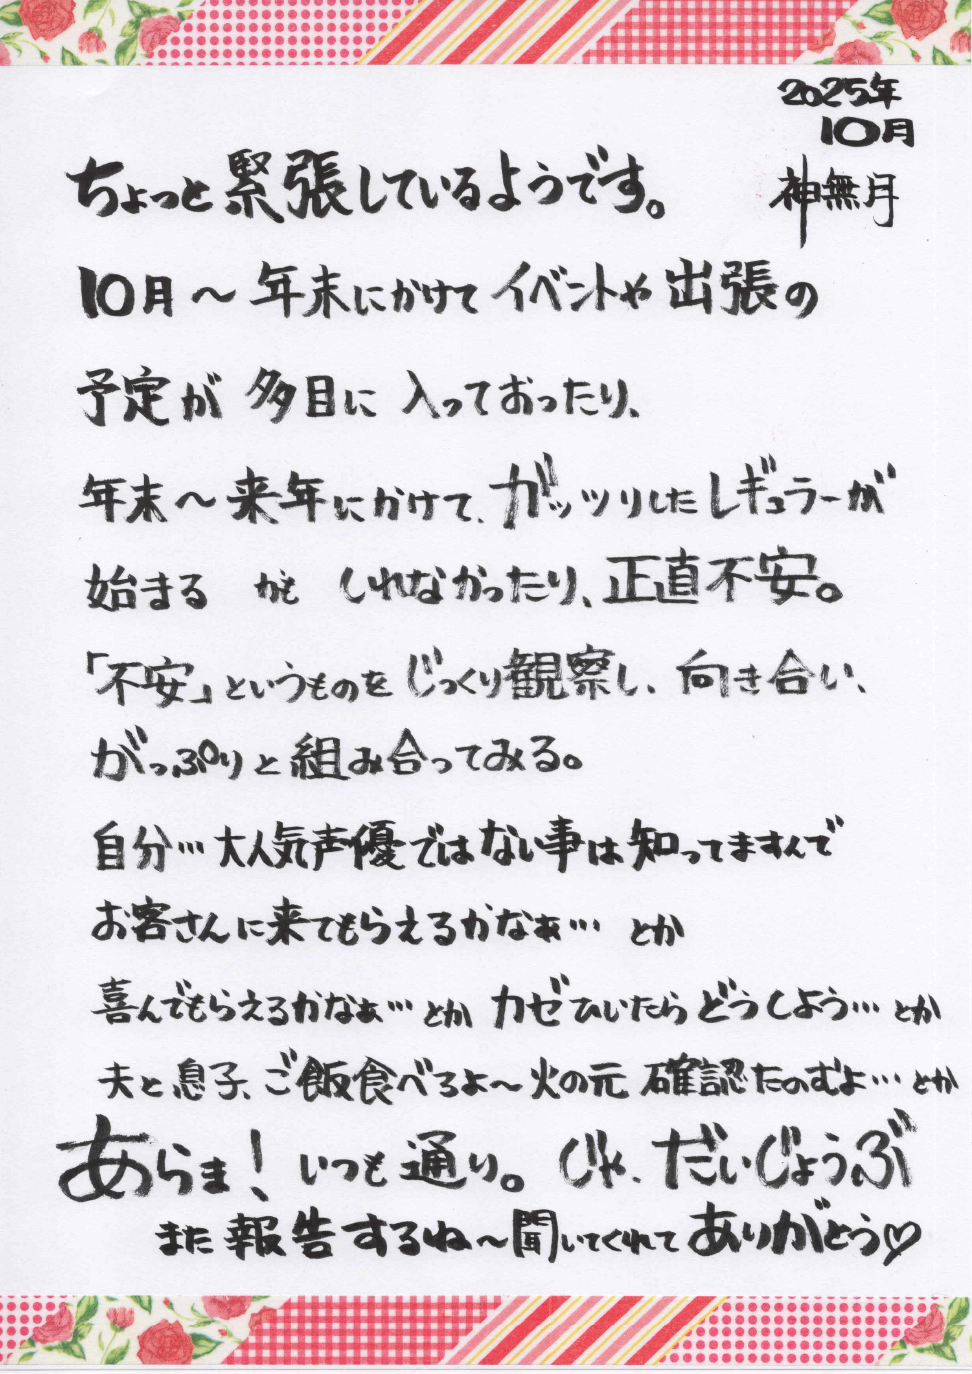 2025年
10月
神無月
ちょっと緊張しているようです。
10月～年末にかけてイベントや出張の
予定が多目に入っておったり、
年末～来年にかけて、ガッツリしたレギュラーが
始まる かも しれなかったり、正直不安。
「不安」というものをじっくり観察し、向き合い、
がっぷりと組み合ってみる。
自分…大人気声優ではない事は知ってますんで
お客さんに来てもらえるかなぁ… とか
喜んでもらえるかなぁ…とか カゼひいたらどうしよう…とか
夫と息子、ご飯食べろよ～火の元 確認たのむよ…とか
あらま！いつも通り。じゃ、だいじょうぶ
また報告するね～聞いてくれてありがとう♡